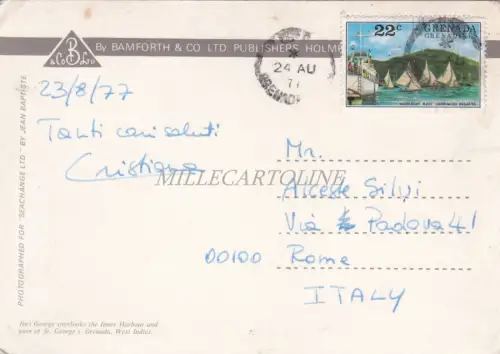 B
& Co Ltd
By BAMFORTH & CO LTD PUBLISHERS HOLMF
22c GRENADA
GRENADINES
24 AU
23/8/77
Tanti cari saluti
Cristiana
MILLECARTOLINE
Mr.
Alceste Silvi
Via Padova 41
00100 Rome
ITALY
PHOTOGRAPHED FOR "SEACHANGE LTD." BY JEAN BAPTISTE
Fort George overlooks the Inner Harbour and
part of St. George's, Grenada, West Indies.